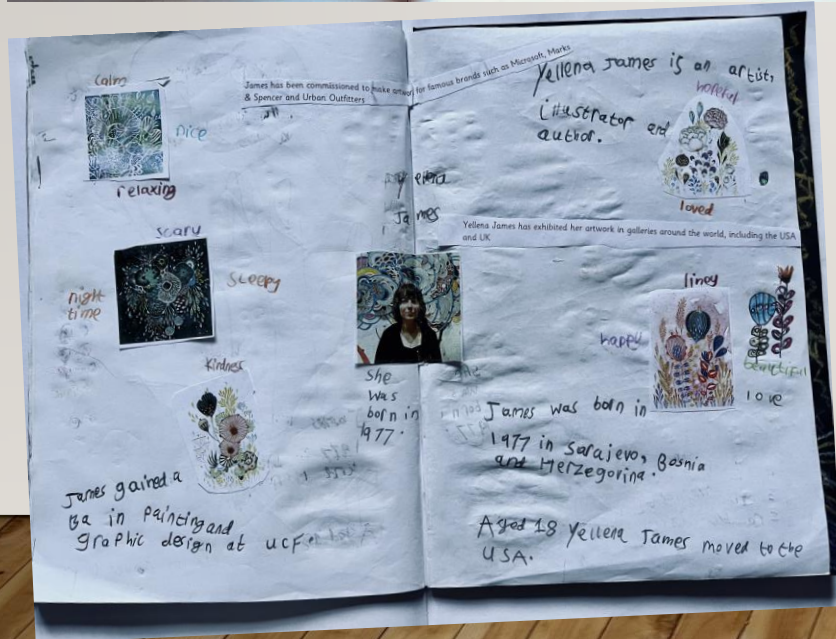 calm
James has been commissioned to make artwork for famous brands such as Microsoft, Marks
& Spencer and Urban Outfitters
nice
relaxing
scary
sleepy
night
time
kindness
James gained a
Ba in painting and
graphic design at UCF
James
She
was
born in
1977.
Yellena James is an artist,
illustrator and
author.
hopeful
loved
Yellena James has exhibited her artwork in galleries around the world, including the USA
and UK
liney
happy
beautiful
love
James was born in
1977 in Sarajevo, Bosnia
and Herzegorina.
Aged 18 Yellena James moved to the
USA.